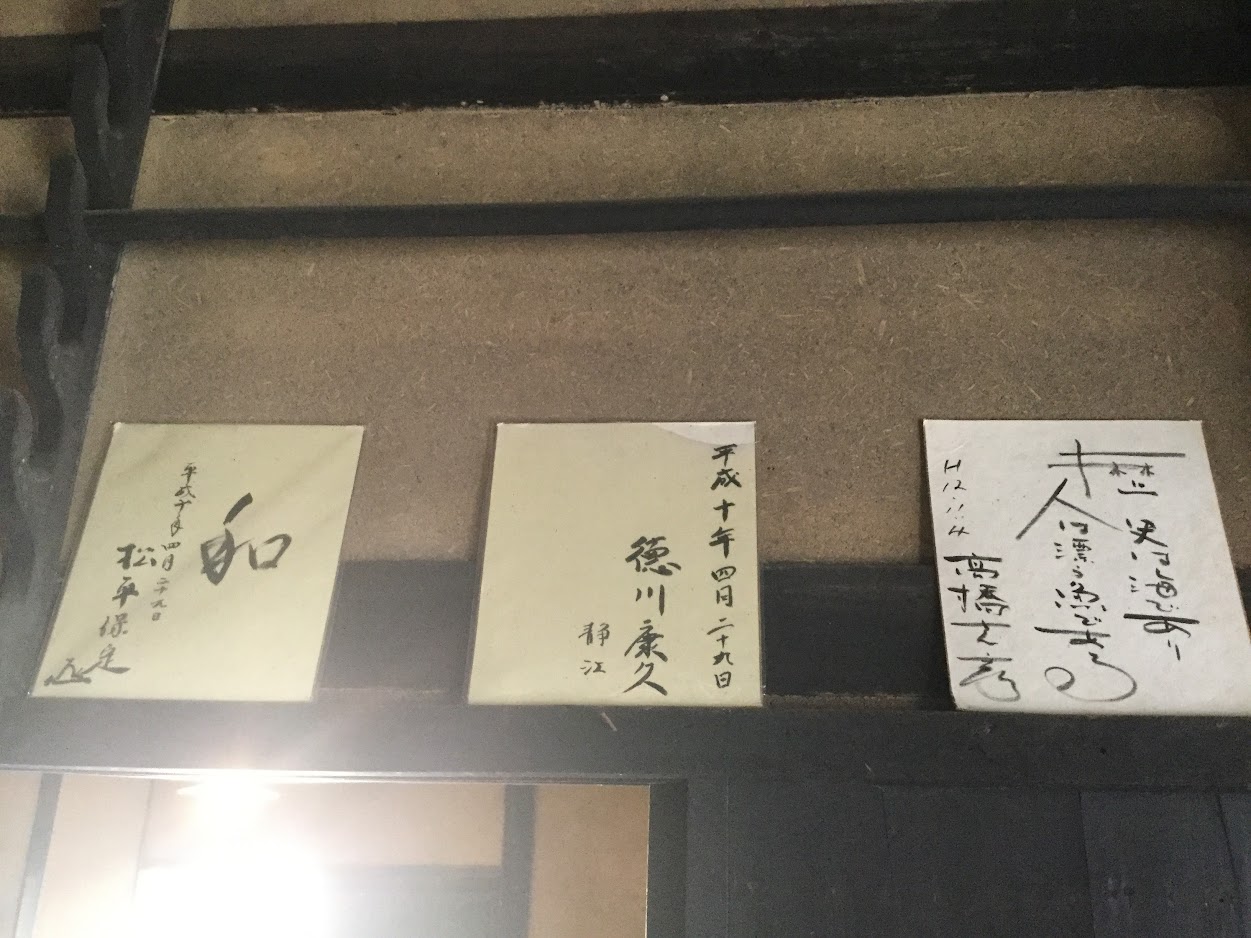 和
平成十年四月二十九日
松平保定
平成十年四月二十九日
徳川康久
静江
歴史は海であり
人は漂う魚である
H12.11.4
高橋克彦